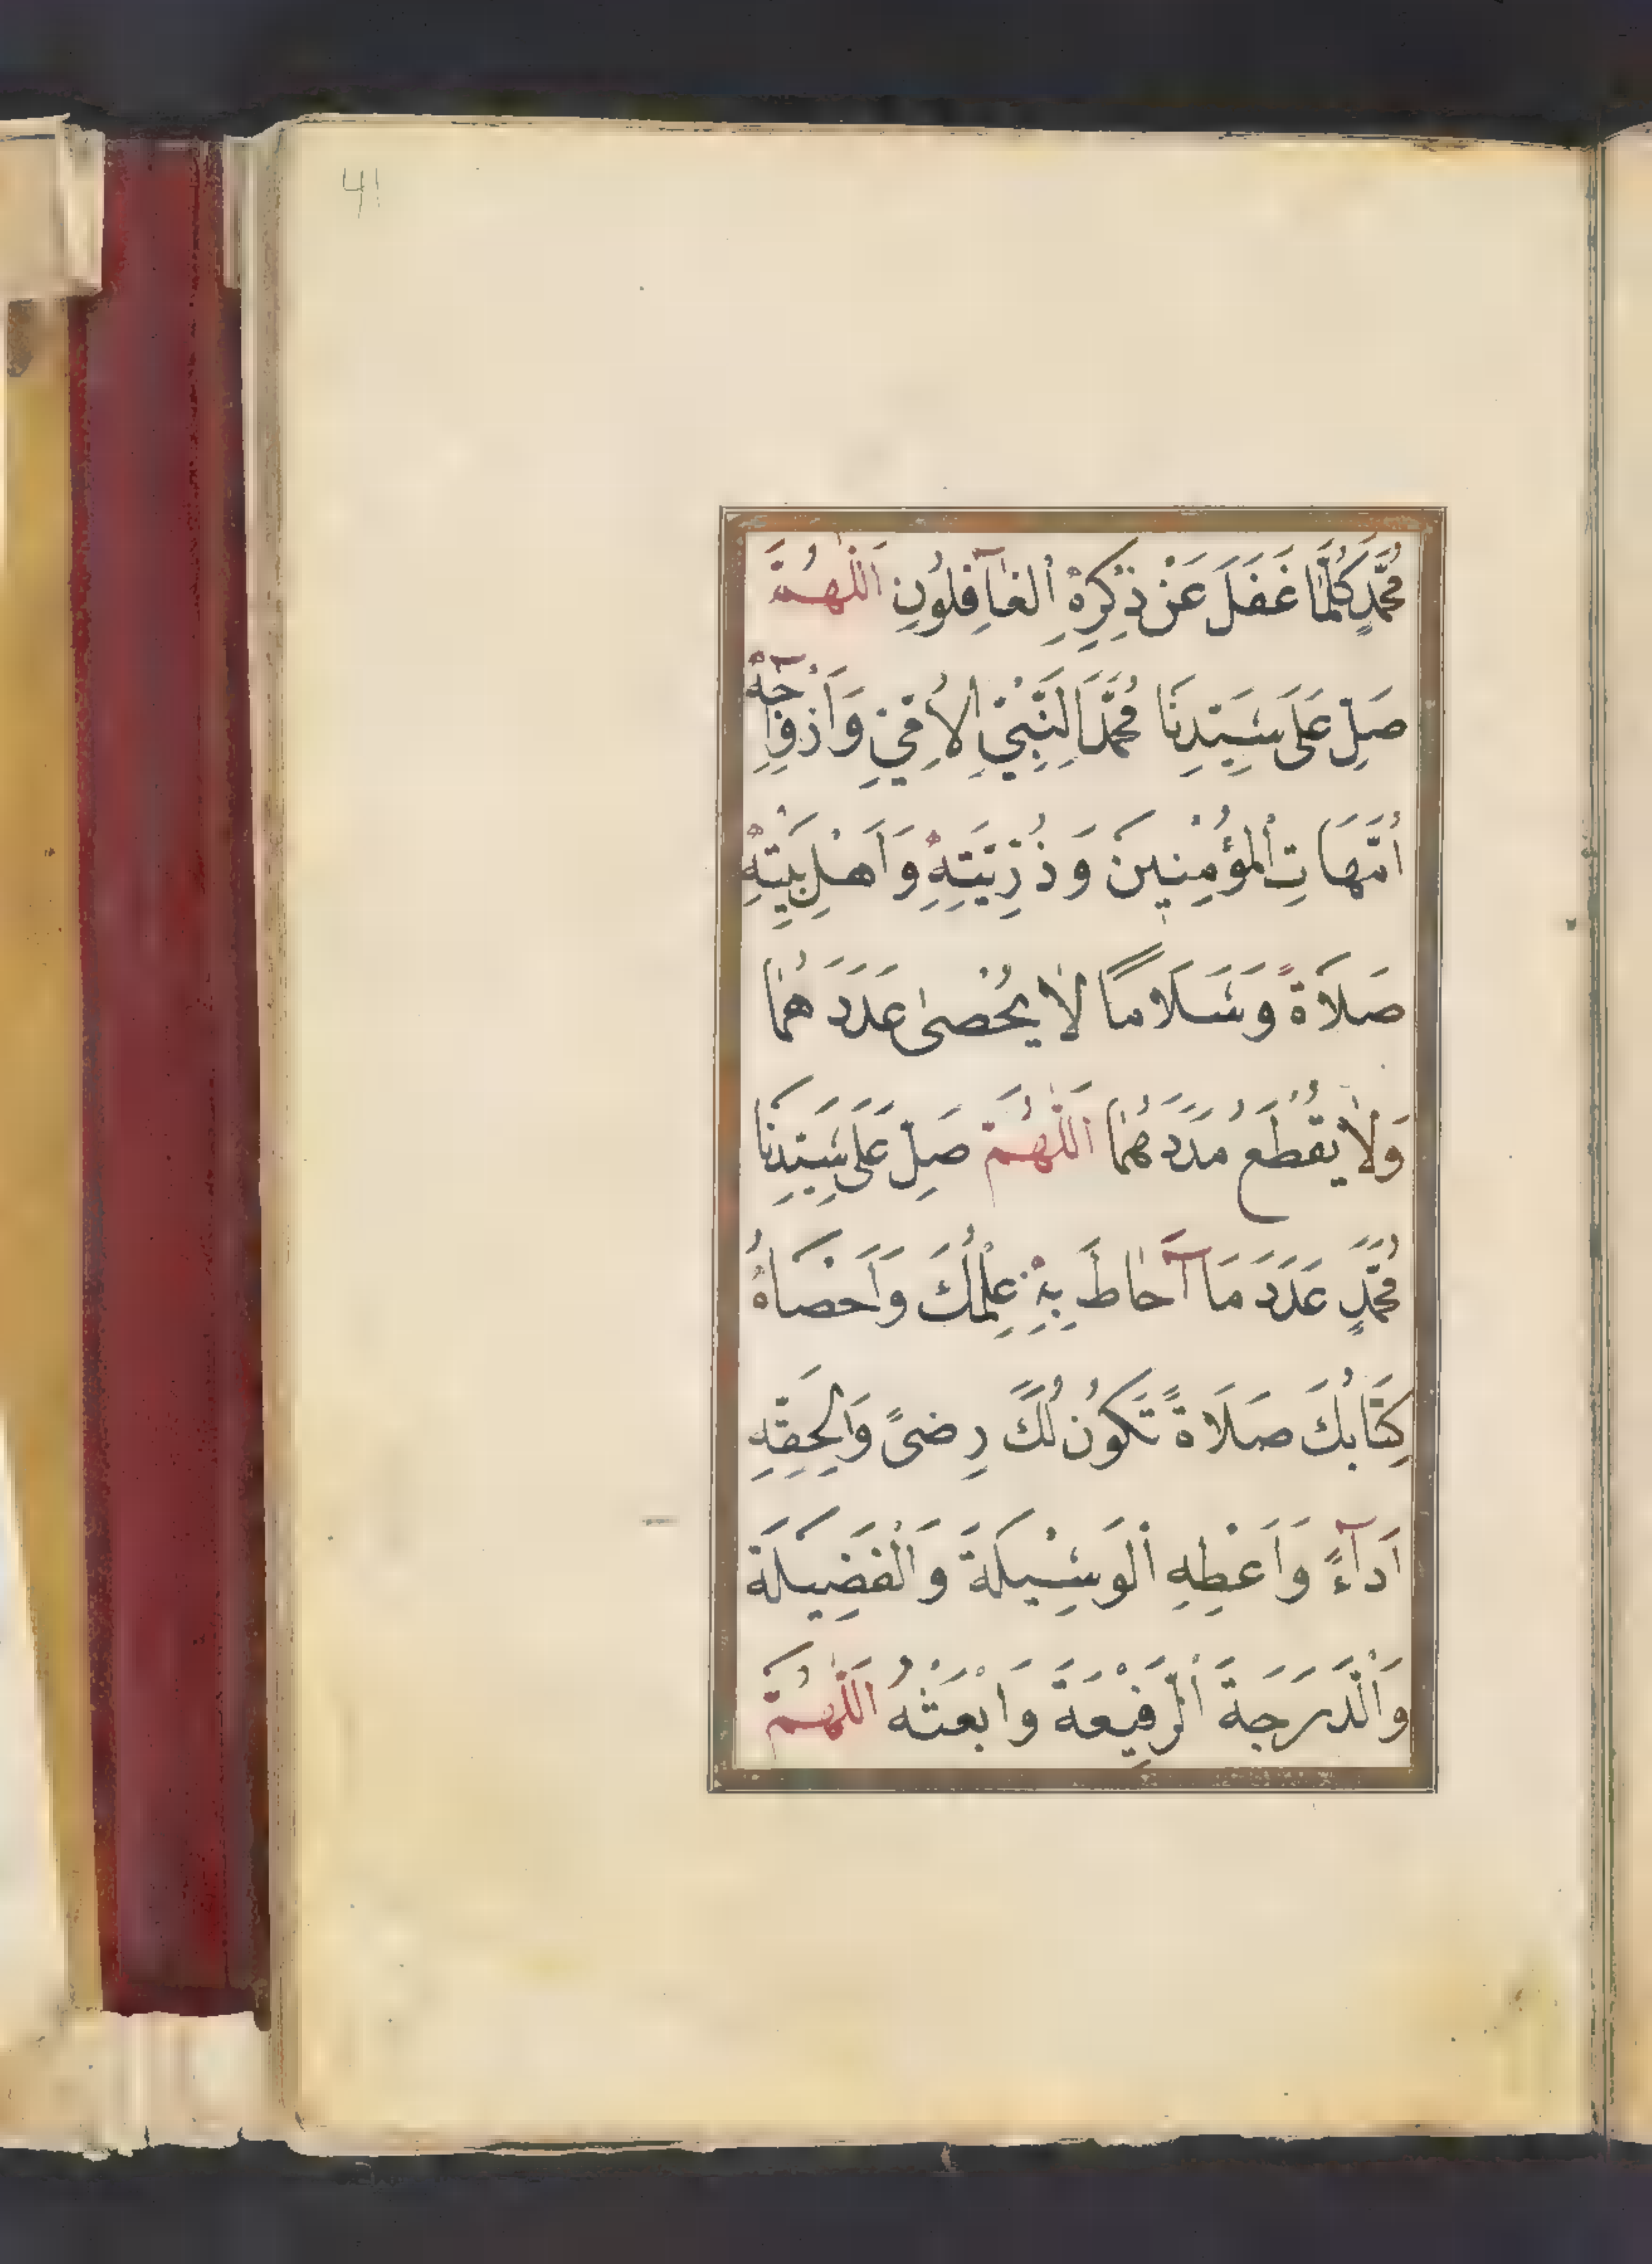 41
مُحَمَّدٍ كُلَّمَا غَفَلَ عَنْ ذِكْرِهِ الْغَافِلُونِ اَللّٰهُمَّ
صَلِّ عَلَى سَيِّدِنَا مُحَمَّدٍ النَّبِيِّ الْاُمِّيِّ وَاَزْوَاجِهِ
اُمَّهَاتِ الْمُؤْمِنِينَ وَذُرِّيَّتِهِ وَاَهْلِ بَيْتِهِ
صَلَاةً وَسَلَامًا لَا يُحْصٰى عَدَدَهُمَا
وَلَا يُقْطَعُ مَدَدَهُمَا اَللّٰهُمَّ صَلِّ عَلَى سَيِّدِنَا
مُحَمَّدٍ عَدَدَ مَا اَحَاطَ بِهِ عِلْمُكَ وَاَحْصَاهُ
كِتَابُكَ صَلَاةً تَكُونُ لَكَ رِضىً وَلِحَقِّهِ
اَدَآءً وَاَعْطِهِ الْوَسِيلَةَ وَالْفَضِيلَةَ
وَالْدَّرَجَةَ الرَّفِيْعَةَ وَابْعَثْهُ اَللّٰهُمَّ